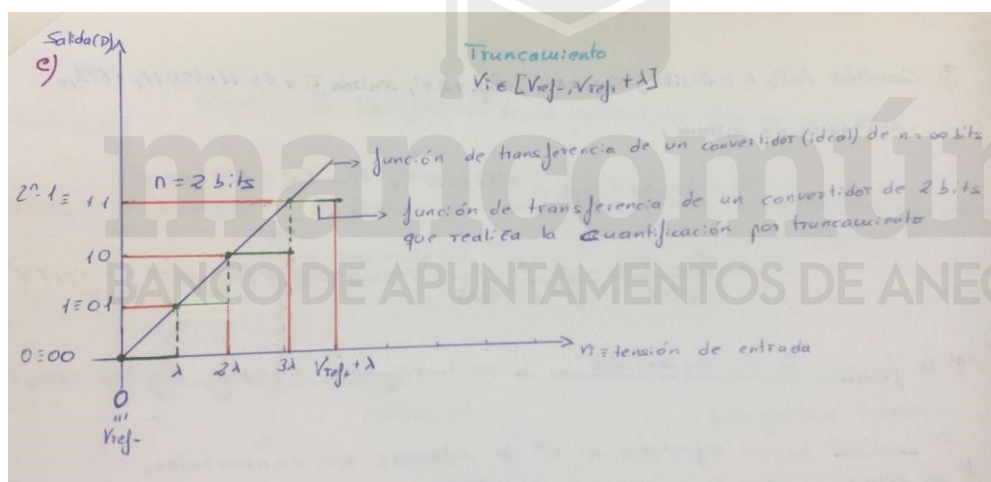 Salida(D)
c)
Truncamiento
Vi ∈ [Vref-, Vref+ + λ]
función de transferencia de un convertidor (ideal) de n = ∞ bits
n = 2 bits
2ⁿ-1 ≡ 11
función de transferencia de un convertidor de 2 bits
que realiza la cuantificación por truncamiento
10
1 ≡ 01
0 ≡ 00
λ 2λ 3λ Vref+ + λ
Vi ≡ tensión de entrada
0
≡
Vref-
mancomún
BANCO DE APUNTAMENTOS DE ANEC